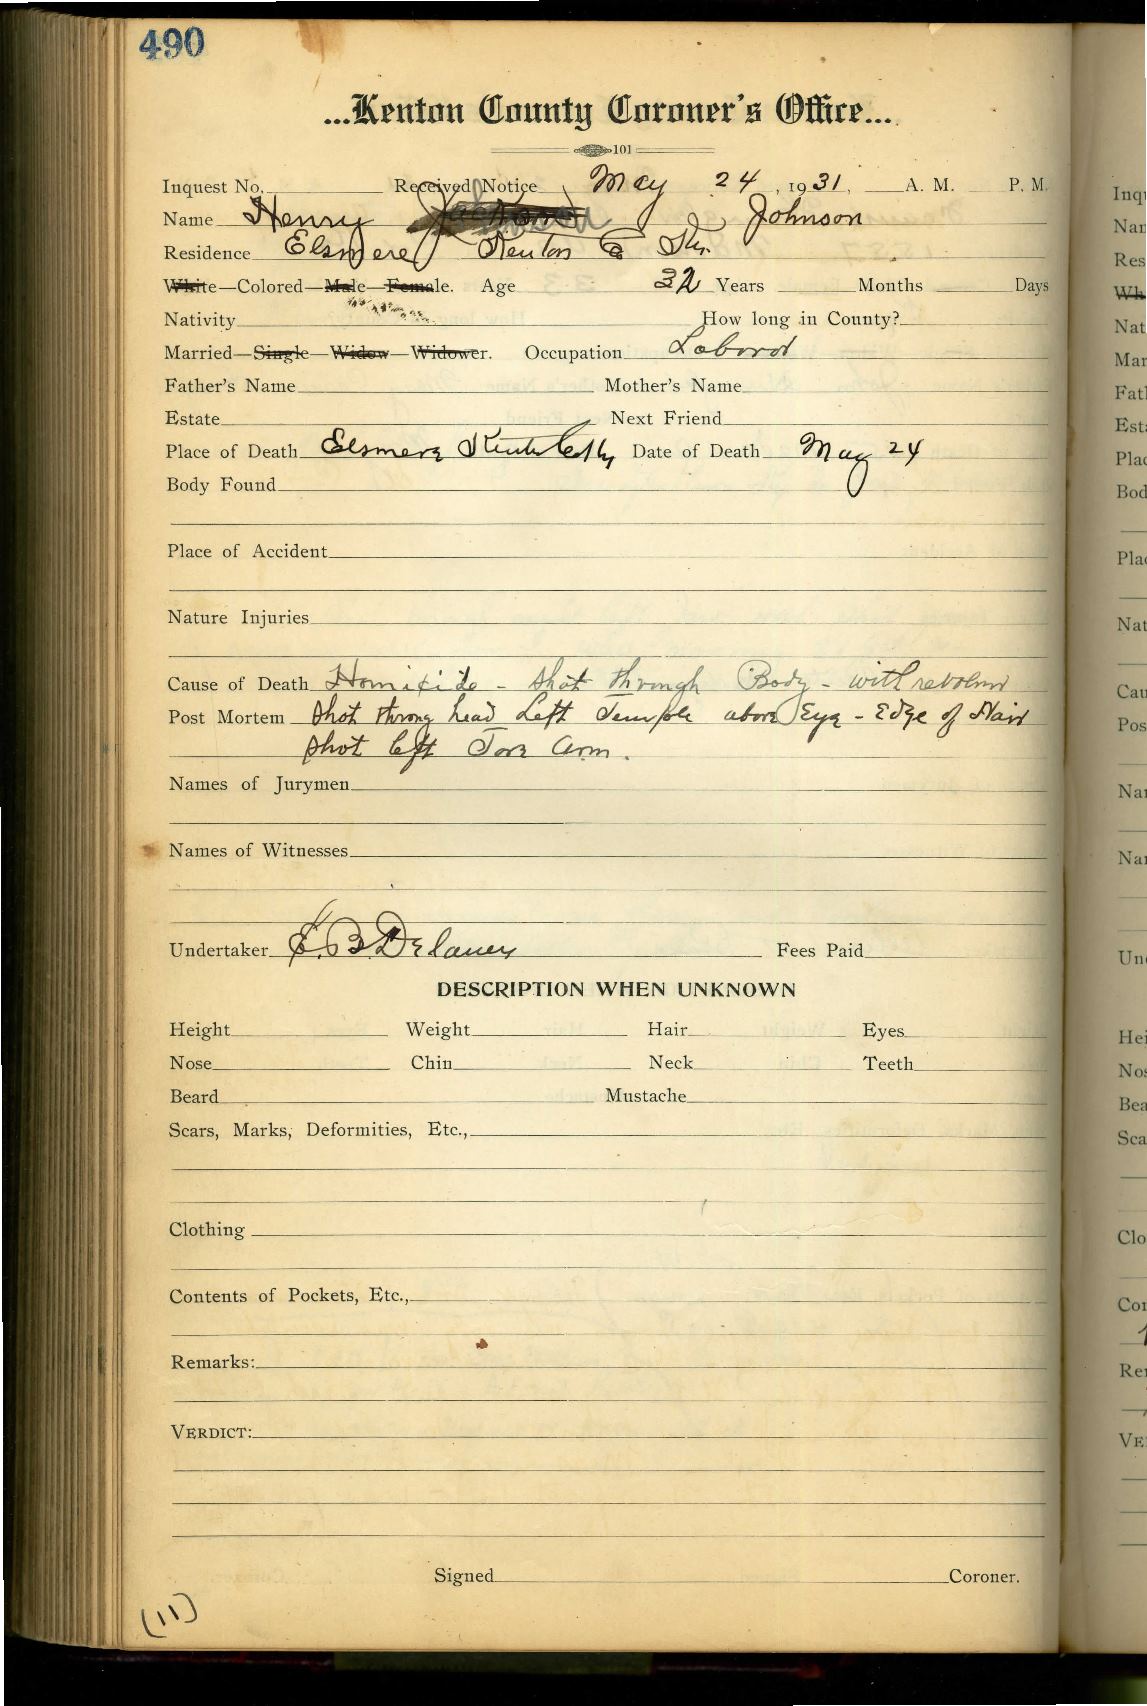 490
...Kenton County Coroner's Office...
101
Inquest No. Received Notice May 24, 1931, A. M. P. M.
Name Henry Jackson Johnson
Residence Elsmere Kenton Co Ky.
White—Colored—Male—Female. Age 32 Years Months Days
Nativity How long in County?
Married—Single—Widow—Widower. Occupation Laboror
Father's Name Mother's Name
Estate Next Friend
Place of Death Elsmere Kenton Co Ky Date of Death May 24
Body Found
Place of Accident
Nature Injuries
Cause of Death Homicide - Shot through Body - with revolver
Post Mortem Shot throug head Left Temple above Eye - Edge of Hair
Shot left Fore Arm.
Names of Jurymen
Names of Witnesses
Undertaker E. B. Delaney Fees Paid
DESCRIPTION WHEN UNKNOWN
Height Weight Hair Eyes
Nose Chin Neck Teeth
Beard Mustache
Scars, Marks, Deformities, Etc.,
Clothing
Contents of Pockets, Etc.,
Remarks:
VERDICT:
Signed Coroner.
(11)